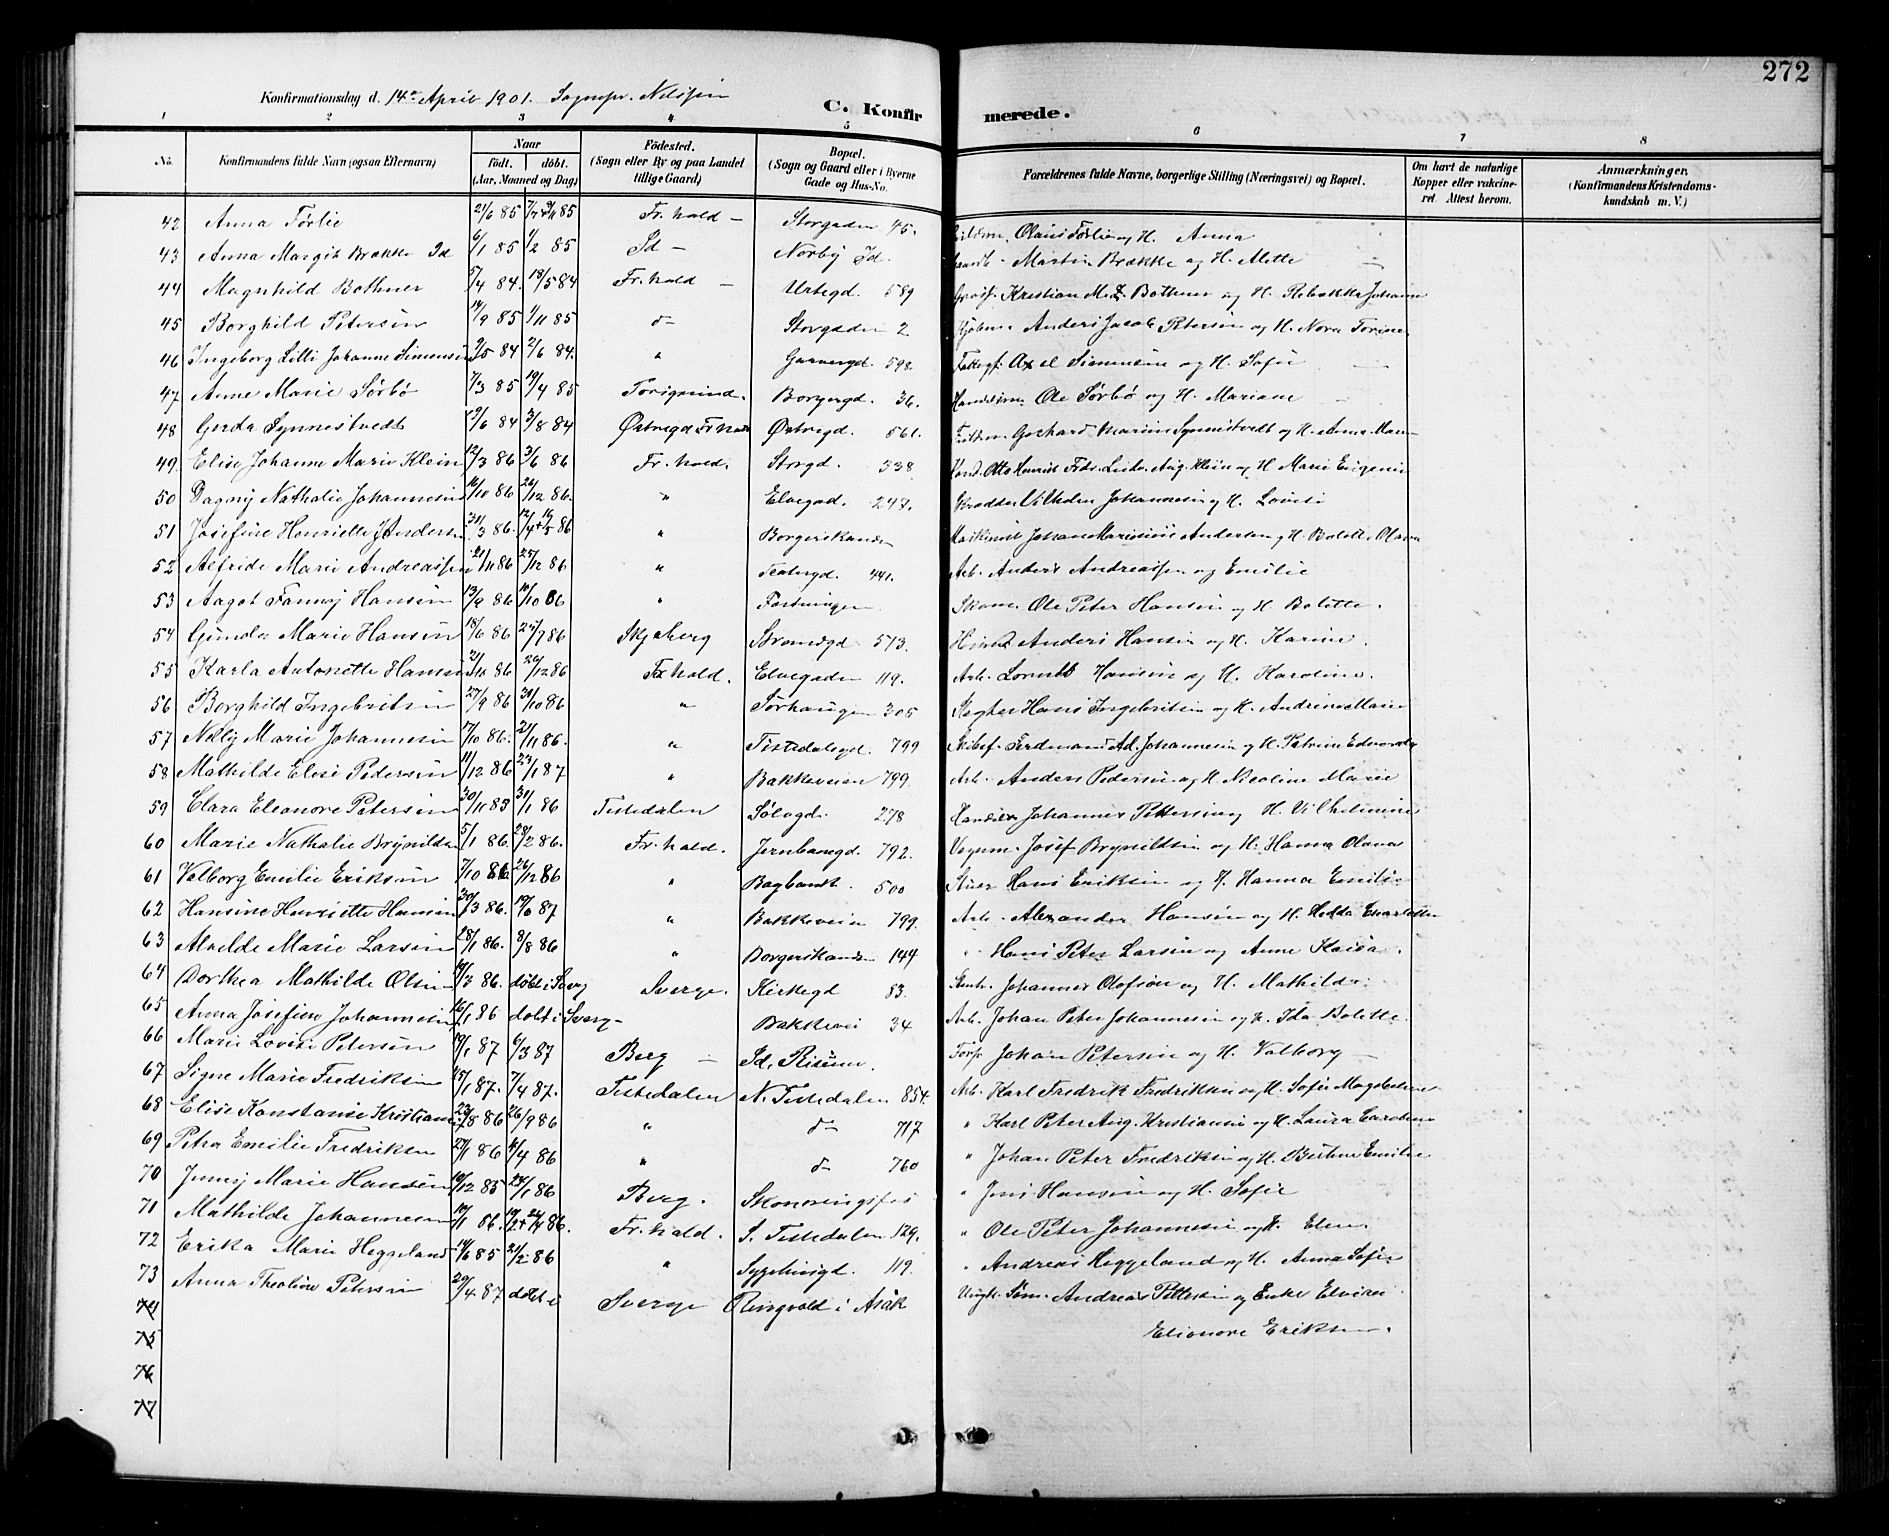 272
Konfirmationsdag d. 14de April 1901. Sognepr. Nilssen
C. Konfirmerede.
1 2 3 4 5 6 7 8
No. Konfirmandens fulde Navn (ogsaa Efternavn) Naar födt. döbt. (Aar, Maaned og Dag) Födested. (Sogn eller By og paa Landet tillige Gaard) Bopæl. (Sogn og Gaard eller i Byerne Gade og Hus-No. Forældrenes fulde Navne, borgerlige Stilling (Næringsvei) og Bopæl. Om havt de naturlige Kopper eller vakcineret. Attest herom. Anmærkninger. (Konfirmandens Kristendomskundskab m. V.)
42 Anna Torlie 21/6 85 85 Fr.hald - Storgaden 45. Olaus Torlie og H. Anna
43 Anna Margit Brække Id 6/1 85 1/2 85 Id - Norby Id. Martin Brække og H. Mette
44 Magnhild Bothner 5/4 84. 18/5 84 Fr.hald - Urtegd. 589 Kristian M. Z. Bothner og H. Rebekka Johanne
45 Borghild Petersen 14/9 85 1/11 85 d- Storgaden 2 Anders Jacob Petersen og H. Nora Torine
46 Ingeborg Lilli Johanne Simensen 2/5 84 2/6 84. " Garvergd. 598. Axel Simensen og H. Sofie
47 Anne Marie Sørbø 7/3 85 19/4 85 Borgergd. 36. Ole Sørbø og H. Mariane
48 Gerda Synnestvedt 13/6 84 3/8 84 Østregd Fr.hald Østregd. 561. Gerhard Marius Synnestvedt og H. Anna
49 Elise Johanne Marie Klein 12/3 86 3/6 86 Fr.hald. Storgd. 338 Otto Henrik Aug. Klein og H Marie Eugenie
50 Dagny Nathalie Johannesen 16/10 86 26/12 86. " Elvegad. 247. Skrædder Vilhelm Johannesen og H. Lovise
51 Josefine Henriette J Andersen 31/3 86. 86 " Borgerskansen Maskinist Johan Andersen og H. Bolette Olava
52 Alfride Marie Andreassen 21/11 86 25/12 86 " Teatergd. 441. Arb. Anders Andreassen og Emilie
53 Aagot Fanny Hansen 13/9 86 10/10 86 " Fæstningen Skom. Ole Peter Hansen og H Bolette.
54 Gunda Marie Hansen 18/6 86 25/7 86 Skjeberg Strømsgd 513. Anders Hansen og H. Karine.
55 Karla Antonette Hansen 21/10 86 26/12 86 Fr.hald. Elvegaden 119. Arb. Hansen og H. Karoline.
56 Borghild Ingebritsen 27/9 86 31/10 86 " Sørhaugen 305 Slagter Hans Ingebritsen og H. Andrine Marie
57 Nelly Marie Johannesen 17/10 86. 21/11 86. " Tistedalsgd. 799 Skibsf. Ferdinand Ad. Johannesen og H. Petrine
58 Mathilde Elise Pedersen 11/12 86 23/1 87 " Bakkeveien 799. Arb. Anders Pedersen og H Nicoline Marie
59 Clara Eleonore Petersen 30/11 85 31/1 86 Tistedalen Sølvgd. 278 Johannes Pettersen og H. Vilhelmine
60 Marie Nathalie Brynildsen 5/1 86. 28/2 86. Fr.hald. Jernbanegd. 792. Vognm. Josef Brynildsen og H. Hanna Olava
61 Valborg Emilie Eriksen 7/10 86 26/12 86 " Bagbandt. 500 Hans Eriksen og H. Hanna Emilie
62 Hansine Henriette Hansen 30/3 86. 87 " Bakkeveien 799. Arb. Alexander Hansen og H. Hedda Charlotte
63 Alvilde Marie Larsen 28/1 86. 8/8 86 " Borgerskansen 144 " Hans Peter Larsen og Anne Kaisa.
64 Dorthea Mathilde Olsen 14/3 86. döbt i Sverg Sverge. Kirkegd 83. Stenh. Johannes Olofson og H. Mathilde
65 Anna Josefine Johannesen 16/1 86 döbt i Sverg- Bakkevei 34 Arb. Johan Peter Johannesen og H. Ida Bolette.
66 Marie Lovise Petersen 19/1 87 6/3 87 Berg - Id, Risum. Johan Petersen og H. Valborg -
67 Signe Marie Fredriksen 15/1 87. 7/4 87. Tistedalen N. Tistedalen 854. Arb. Karl Fredrik Fredriksen og H. Sofie Magdalene
68 Elise Konstanse Kristiansen 22/8 86 26/9 86 " d- 717 " Karl Peter Aug. Kristiansen og H. Laura Caroline
69 Petra Emilie Fredriksen 29/1 86 11/4 86 " d- 760 " Johan Peter Fredriksen og H. Emilie
70 Jenny Marie Hansen 10/12 85 24/1 86 Berg. Skonningsfos " Jens Hansen og H. Sofie
71 Mathilde Johannesen 10/1 86. 86. Fr.hald. S. Tistedalen 129. " Ole Peter Johannesen og H. Elen.
72 Erika Marie Heggeland 14/6 85 21/2 86 " Sygehusgd. 119. " Andreas Heggeland og H. Anna Sofie
73 Anna Theoline Petersen 29/4 87 döbt i Sverge Ringvold i Asak Andreas Pettersen og Enke Elvine
Elionore Eriksen.
74
75
76
77